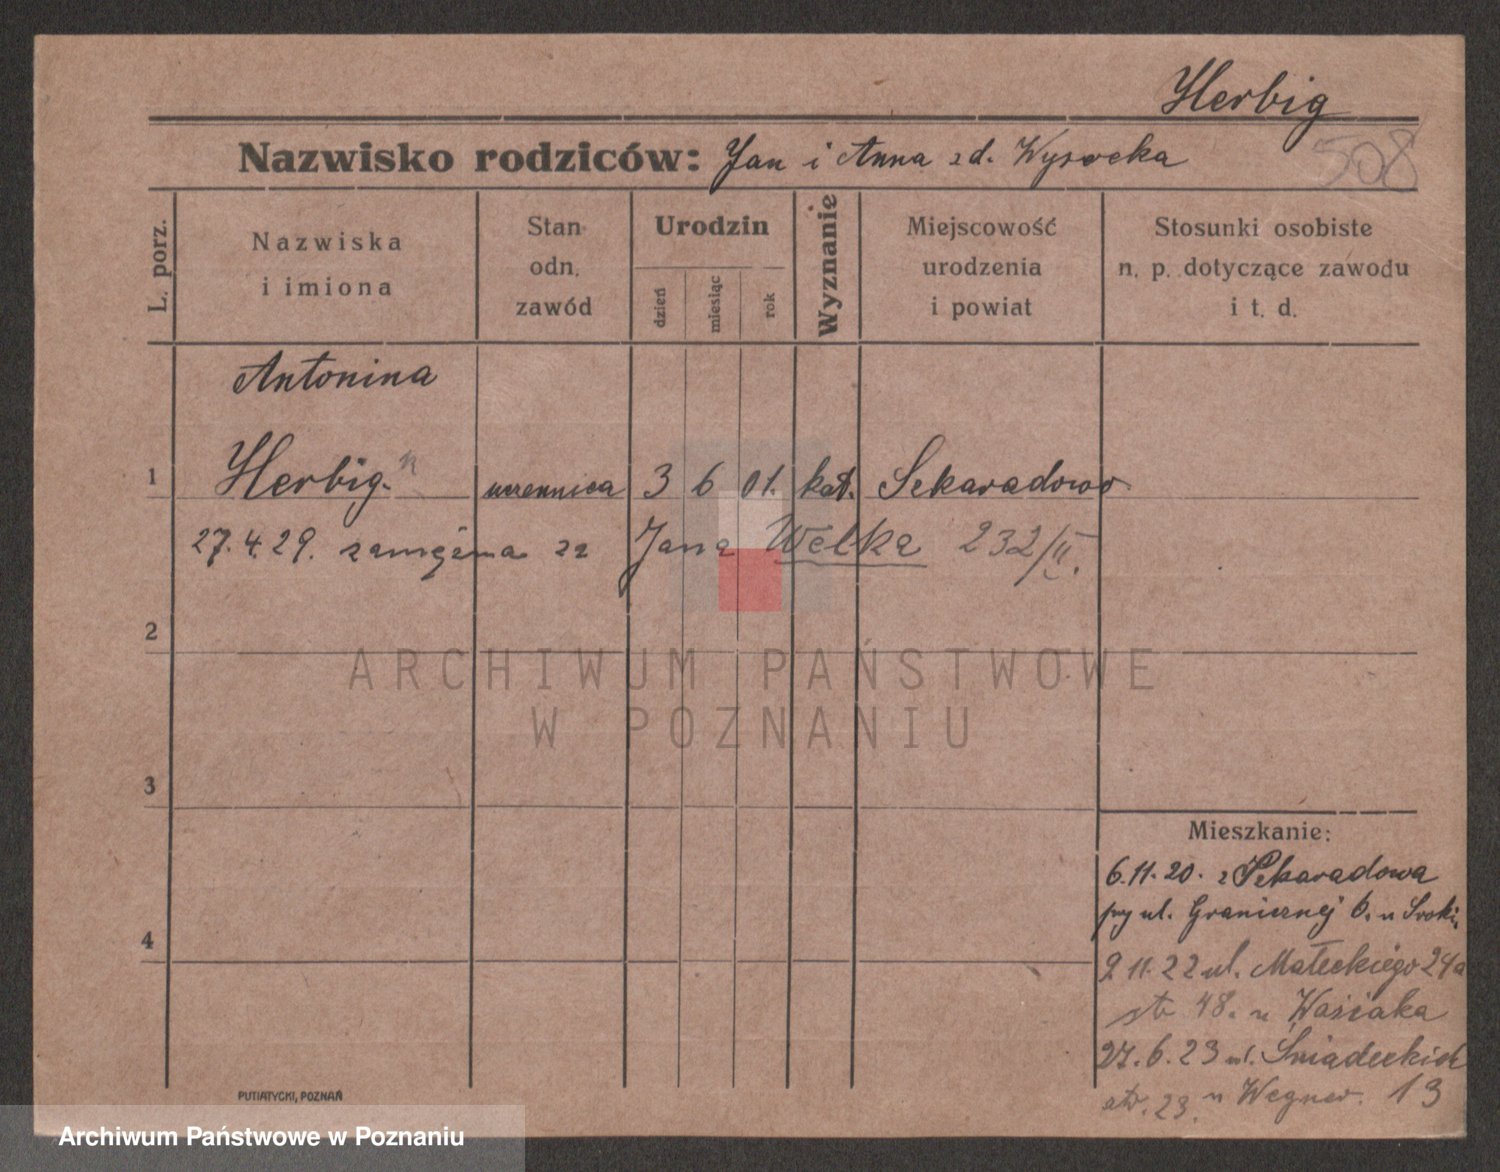 Herbig
Nazwisko rodziców: Jan i Anna zd. Wysocka
508
L. porz.
Nazwiska
i imiona
Stan
odn.
zawód
Urodzin
dzień
miesiąc
rok
Wyznanie
Miejscowość
urodzenia
i powiat
Stosunki osobiste
n. p. dotyczące zawodu
i t. d.
Antonina
1 Herbig. uczennica 3 6 01. kat. Sekaradowo
27.4.29. zamężna za Jana Welka 232/II.
2
ARCHIWUM PAŃSTWOWE
W POZNANIU
3
Mieszkanie:
6.11.20. z Sekaradowa
przy ul. Granicznej 6. u Sroki
4
9.11.22 ul. Małeckiego 24a
str 48. u Waśiaka
27.6.23 ul. Śniadeckich
str. 23. u Wegner. 13
PUTIATYCKI, POZNAŃ
Archiwum Państwowe w Poznaniu